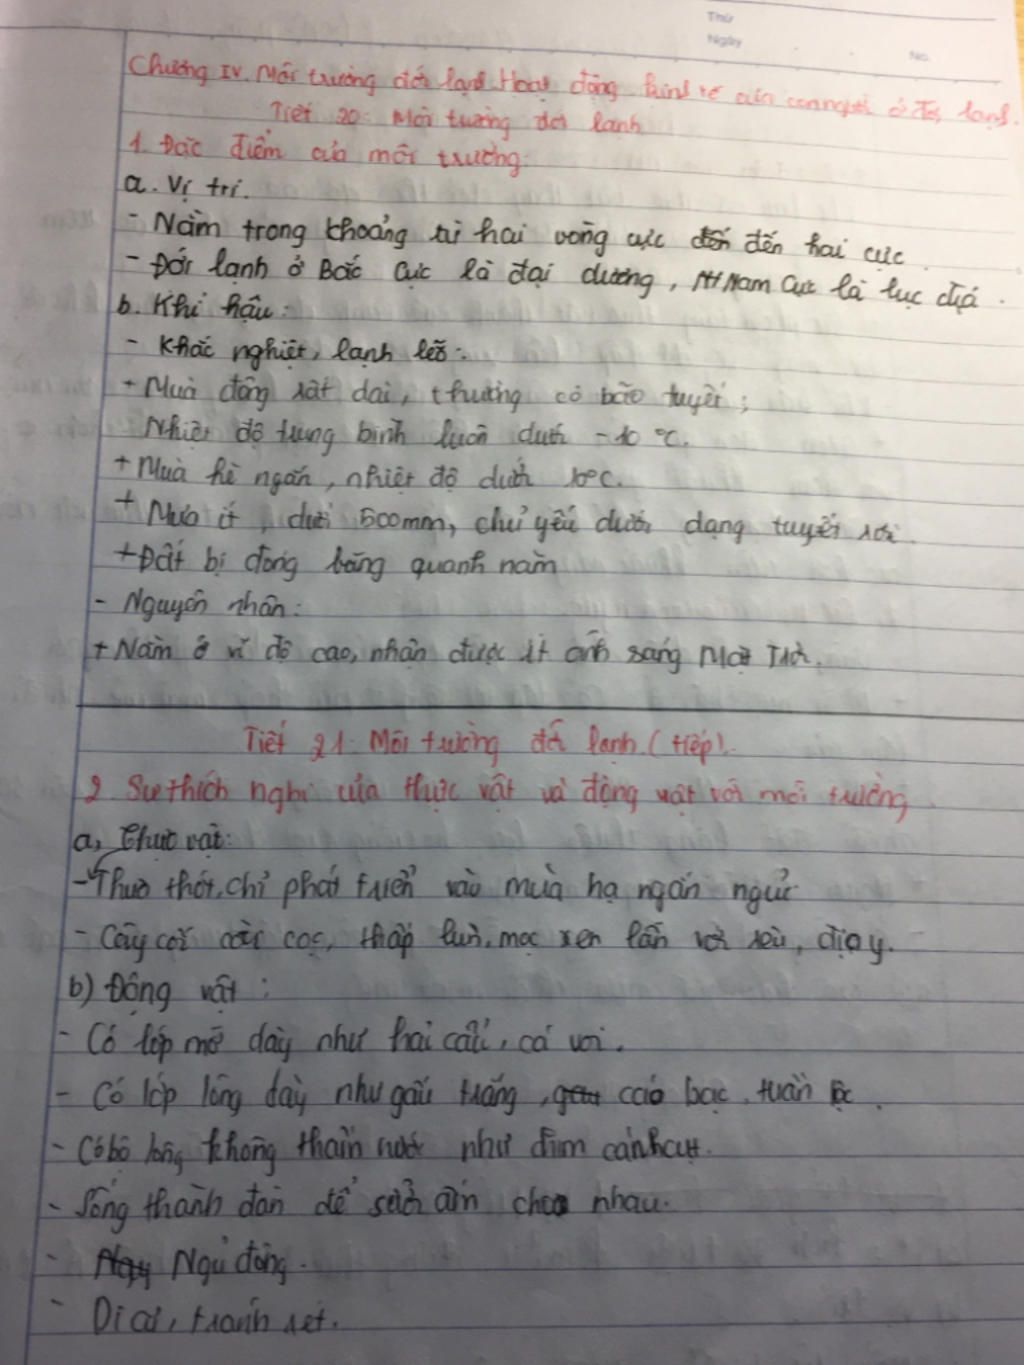 Thứ
Ngày
No.
Chương IV. Môi trường đới lạnh. Hoạt động kinh tế của con người ở đới lạnh.
Tiết 20: Môi trường đới lạnh
1. Đặc điểm của môi trường:
a. Vị trí.
- Nằm trong khoảng từ hai vòng cực đến hai cực.
- Đới lạnh ở Bắc Cực là đại dương, Nam Cực là lục địa.
b. Khí hậu:
- Khắc nghiệt, lạnh lẽo:
+ Mùa đông rất dài, thường có bão tuyết;
Nhiệt độ trung bình luôn dưới -10 °C.
+ Mùa hè ngắn, nhiệt độ dưới 10°C.
+ Mưa ít, dưới 500mm, chủ yếu dưới dạng tuyết rơi.
+ Đất bị đóng băng quanh năm
- Nguyên nhân:
+ Nằm ở vĩ độ cao, nhận được ít ánh sáng Mặt Trời.
Tiết 21: Môi trường đới lạnh (tiếp).
2. Sự thích nghi của thực vật và động vật với môi trường.
a, Thực vật:
- Thưa thớt, chỉ phát triển vào mùa hạ ngắn ngủi
- Cây cối còi cọc, thấp lùn, mọc xen lẫn với rêu, địa y.
b) Động vật:
- Có lớp mỡ dày như hải cẩu, cá voi.
- Có lớp lông dày như gấu trắng, cáo bạc, tuần lộc.
- Có bộ lông không thấm nước như chim cánh cụt.
- Sống thành đàn để sưởi ấm cho nhau.
- Ngủ đông.
- Di cư, tránh rét.